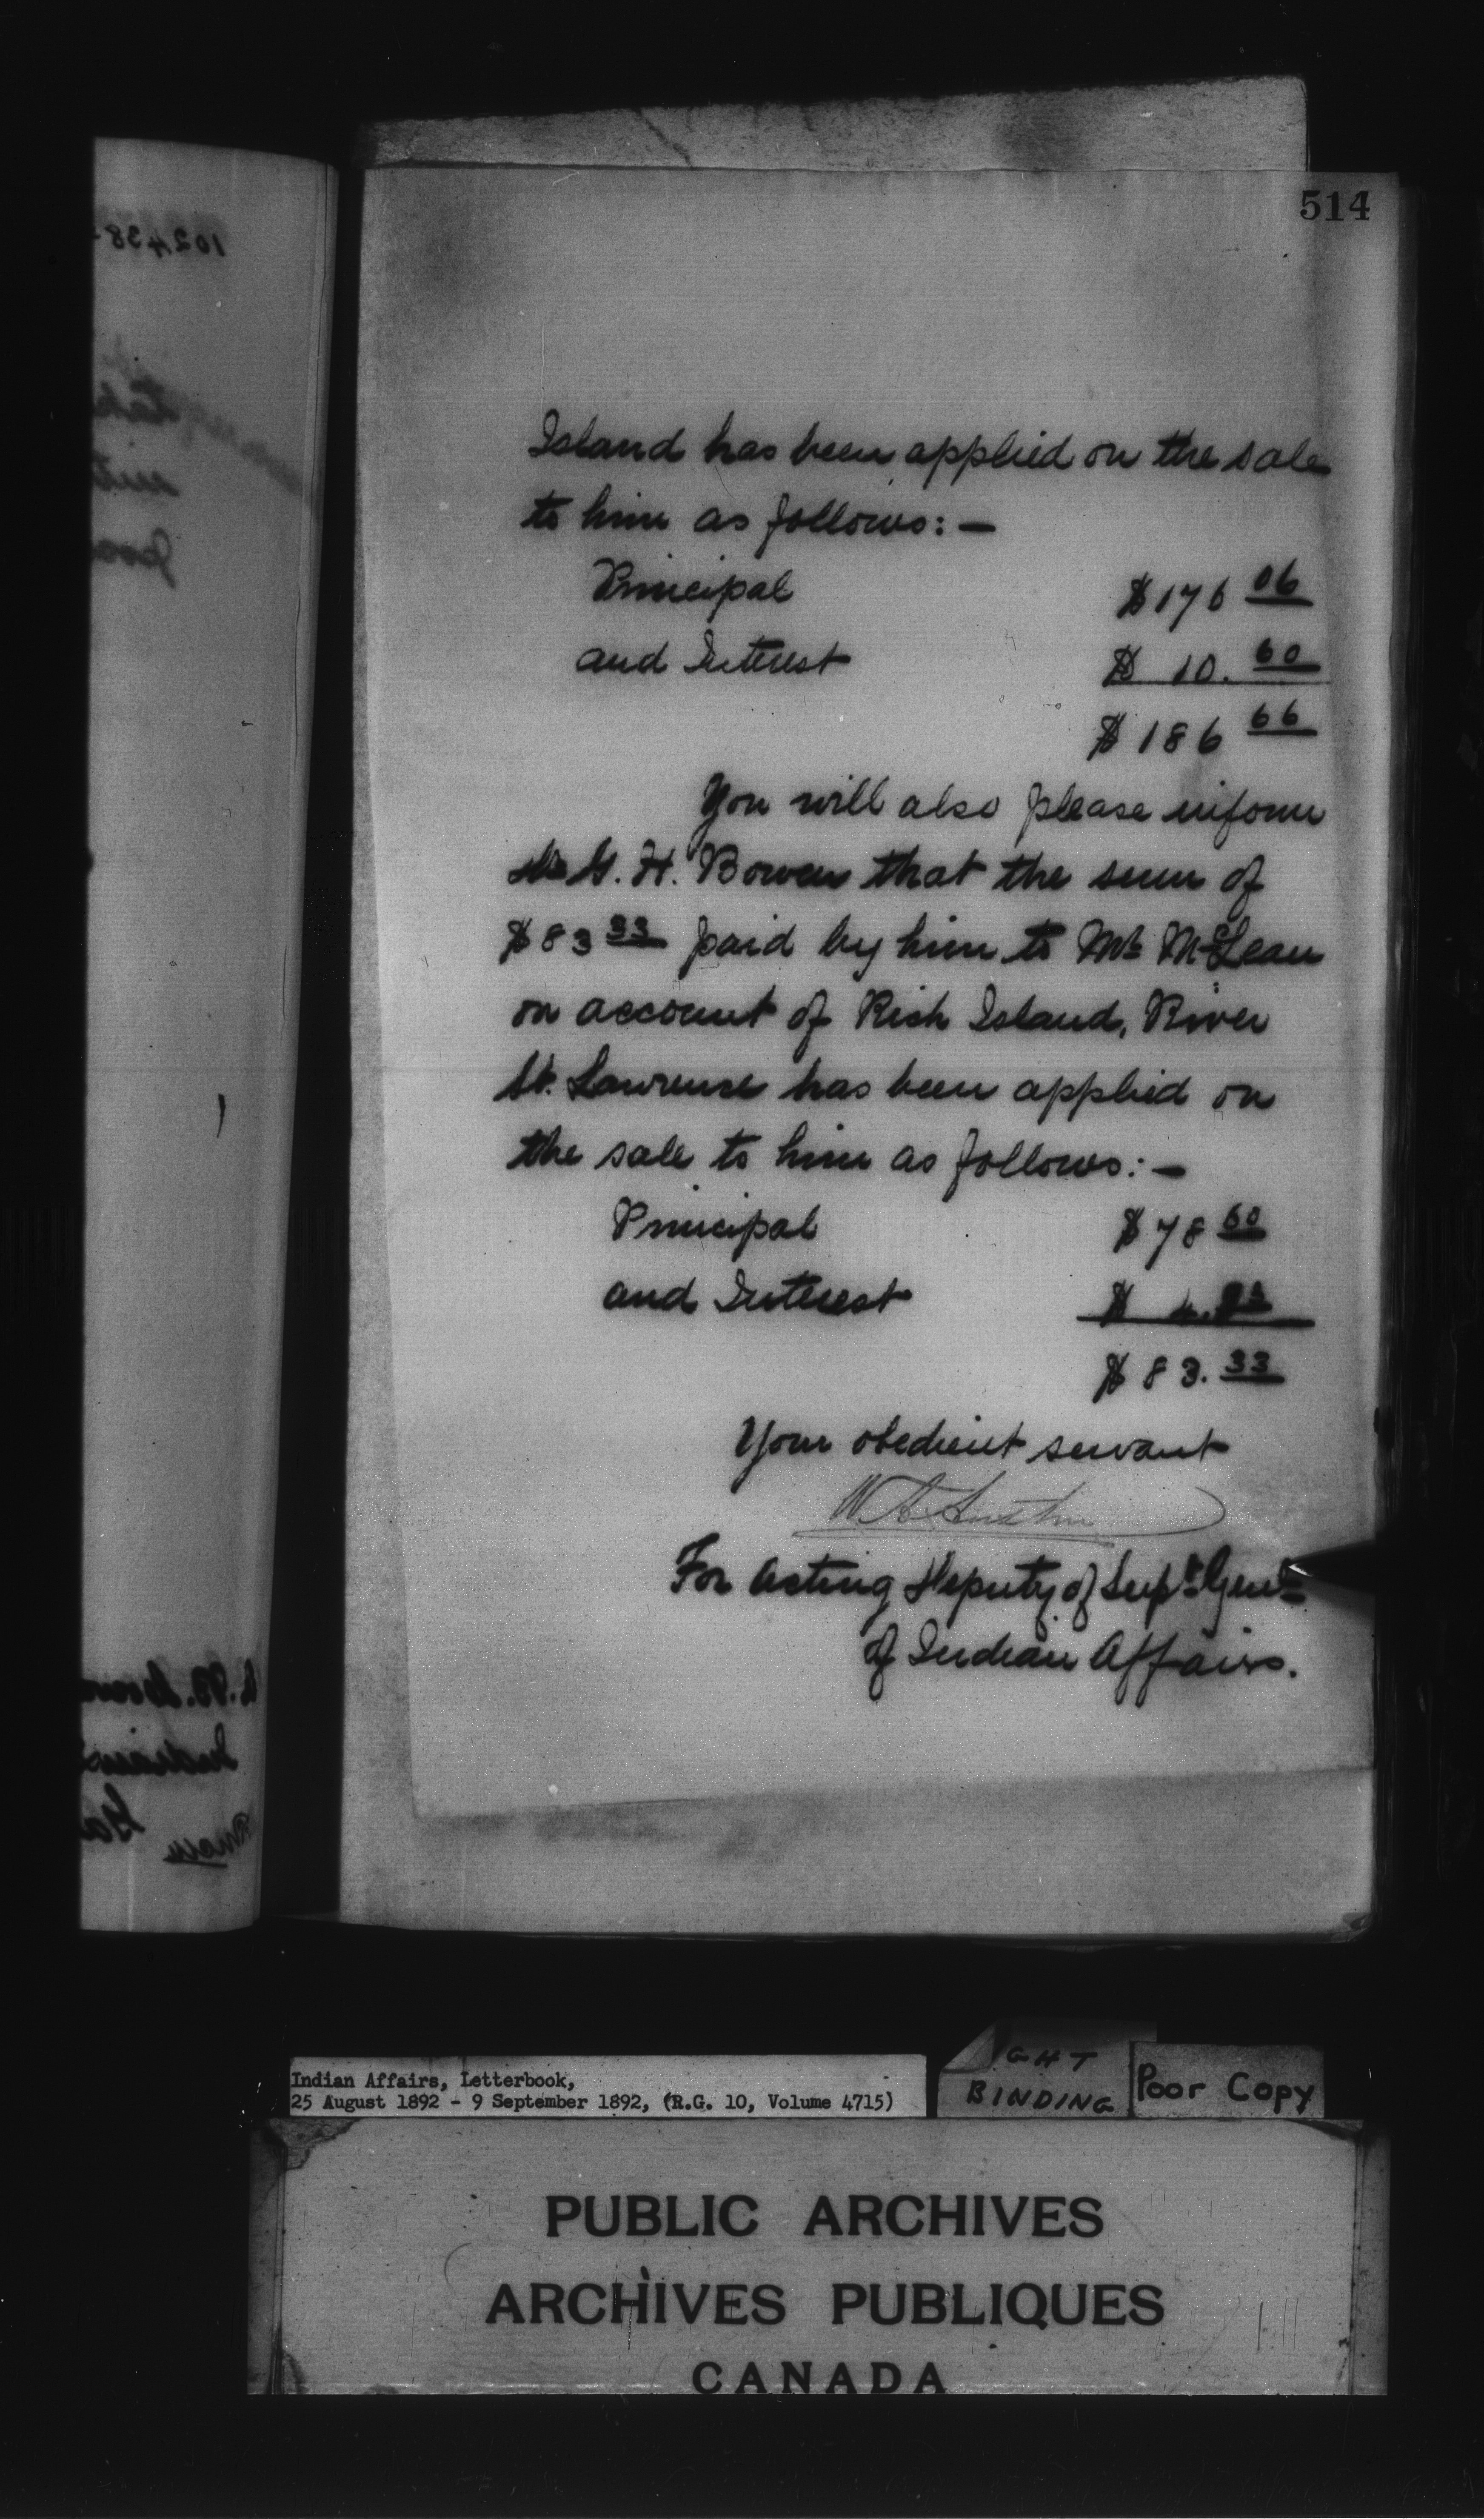 514
Island has been applied on the sale
to him as follows: —
Principal $176 06
and Interest $ 10. 60
$ 186 66
You will also please inform
Mr G. H. Bowen that the sum of
$83 33 paid by him to Mr. McLean
on account of Rich Island, River
St. Lawrence has been applied on
the sale to him as follows: —
Principal $78 60
and Interest $ 4.
$ 83. 33
Your obedient servant
W A Austin
For Acting Deputy of Supt. Genl.
of Indian Affairs.
102438
Indian Affairs, Letterbook,
25 August 1892 - 9 September 1892, (R.G. 10, Volume 4715)
GHT
BINDING
Poor Copy
PUBLIC ARCHIVES
ARCHIVES PUBLIQUES
CANADA